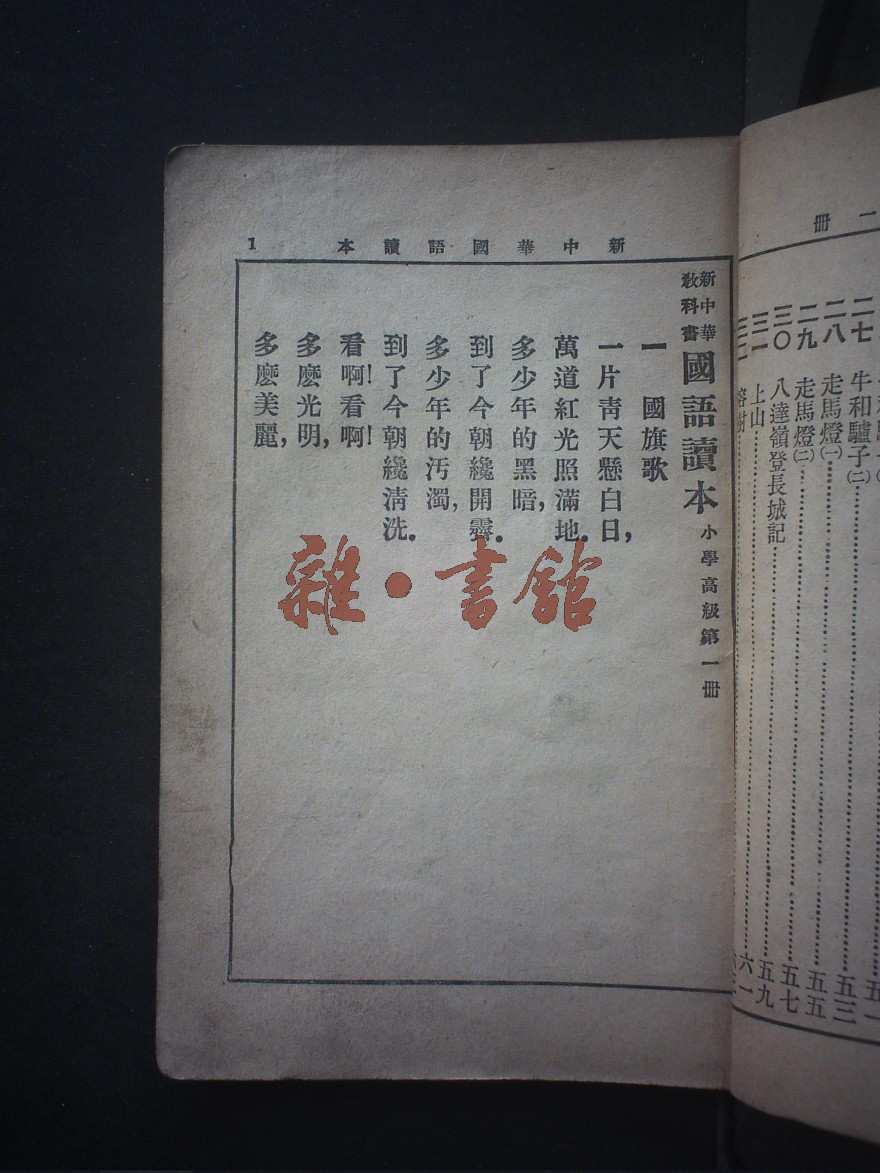 二册
二七
牛和驢子(二)……五三
二八 走馬燈(一)……五五
二九 走馬燈(二)……五五
三〇 八達嶺登長城記……五七
三一 上山……五九
三二
六一
新中華國語讀本 1
新中華教科書 國語讀本 小學高級第一册
一 國旗歌
一片靑天懸白日,
萬道紅光照滿地。
多少年的黑暗,
到了今朝纔開霽。
多少年的汚濁,
到了今朝纔淸洗。
看啊!看啊!
多麽光明,
多麽美麗,
雜·書館